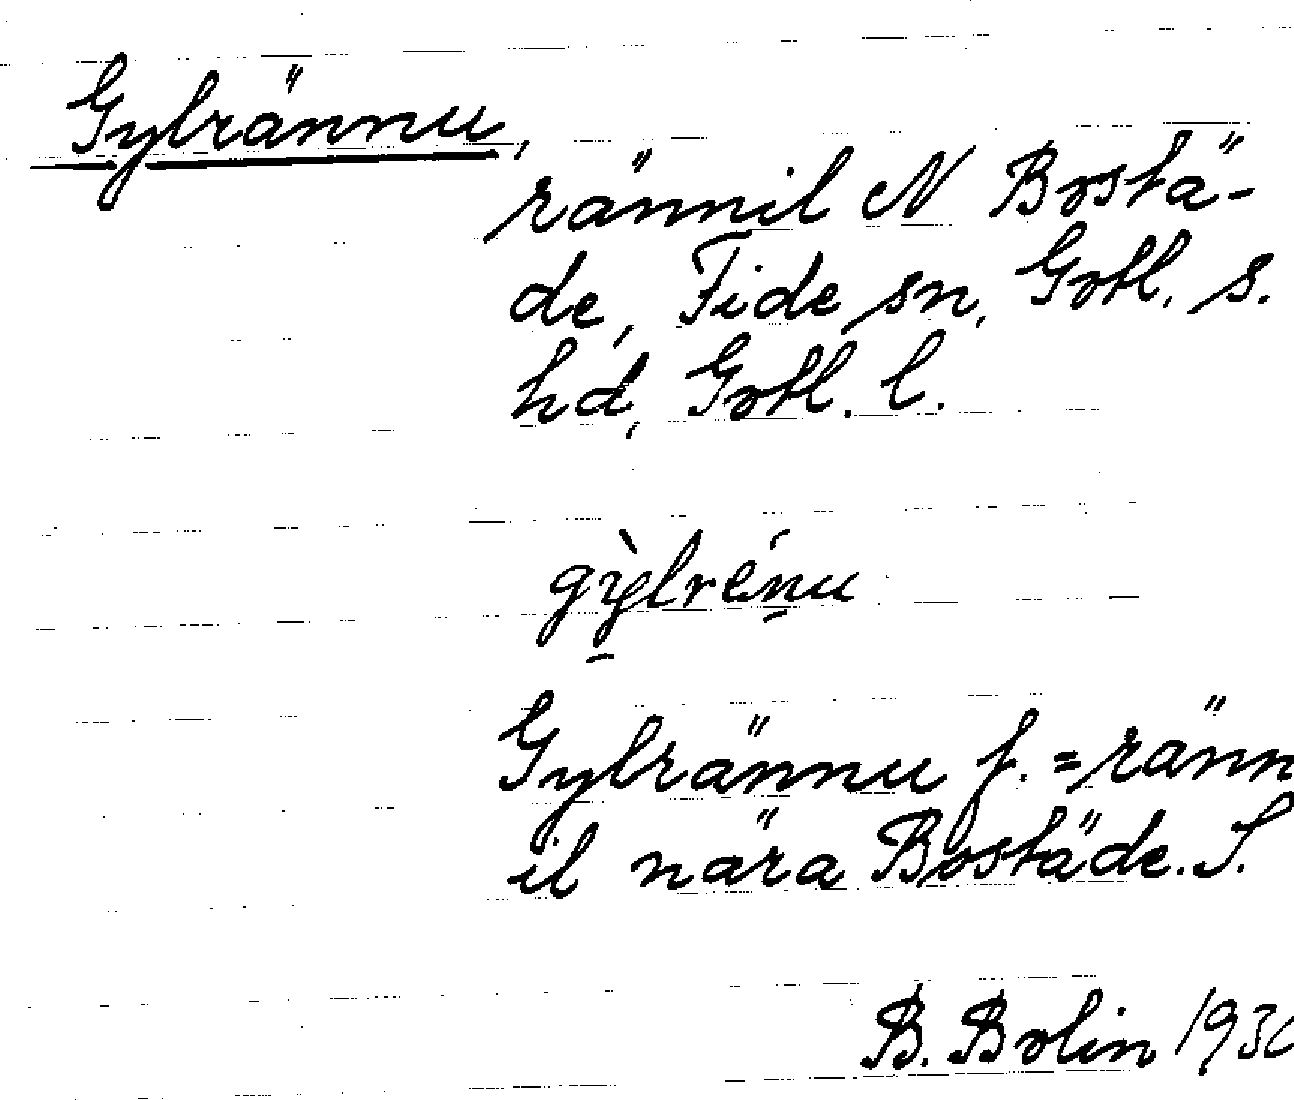 Gylrännu,
rännil N Bostä-
de, Fide sn, Gotl. s.
hd, Gotl. l.
gỳlrénu
Gylrännu f. = ränn
il nära Bostäde. S.
B. Bolin